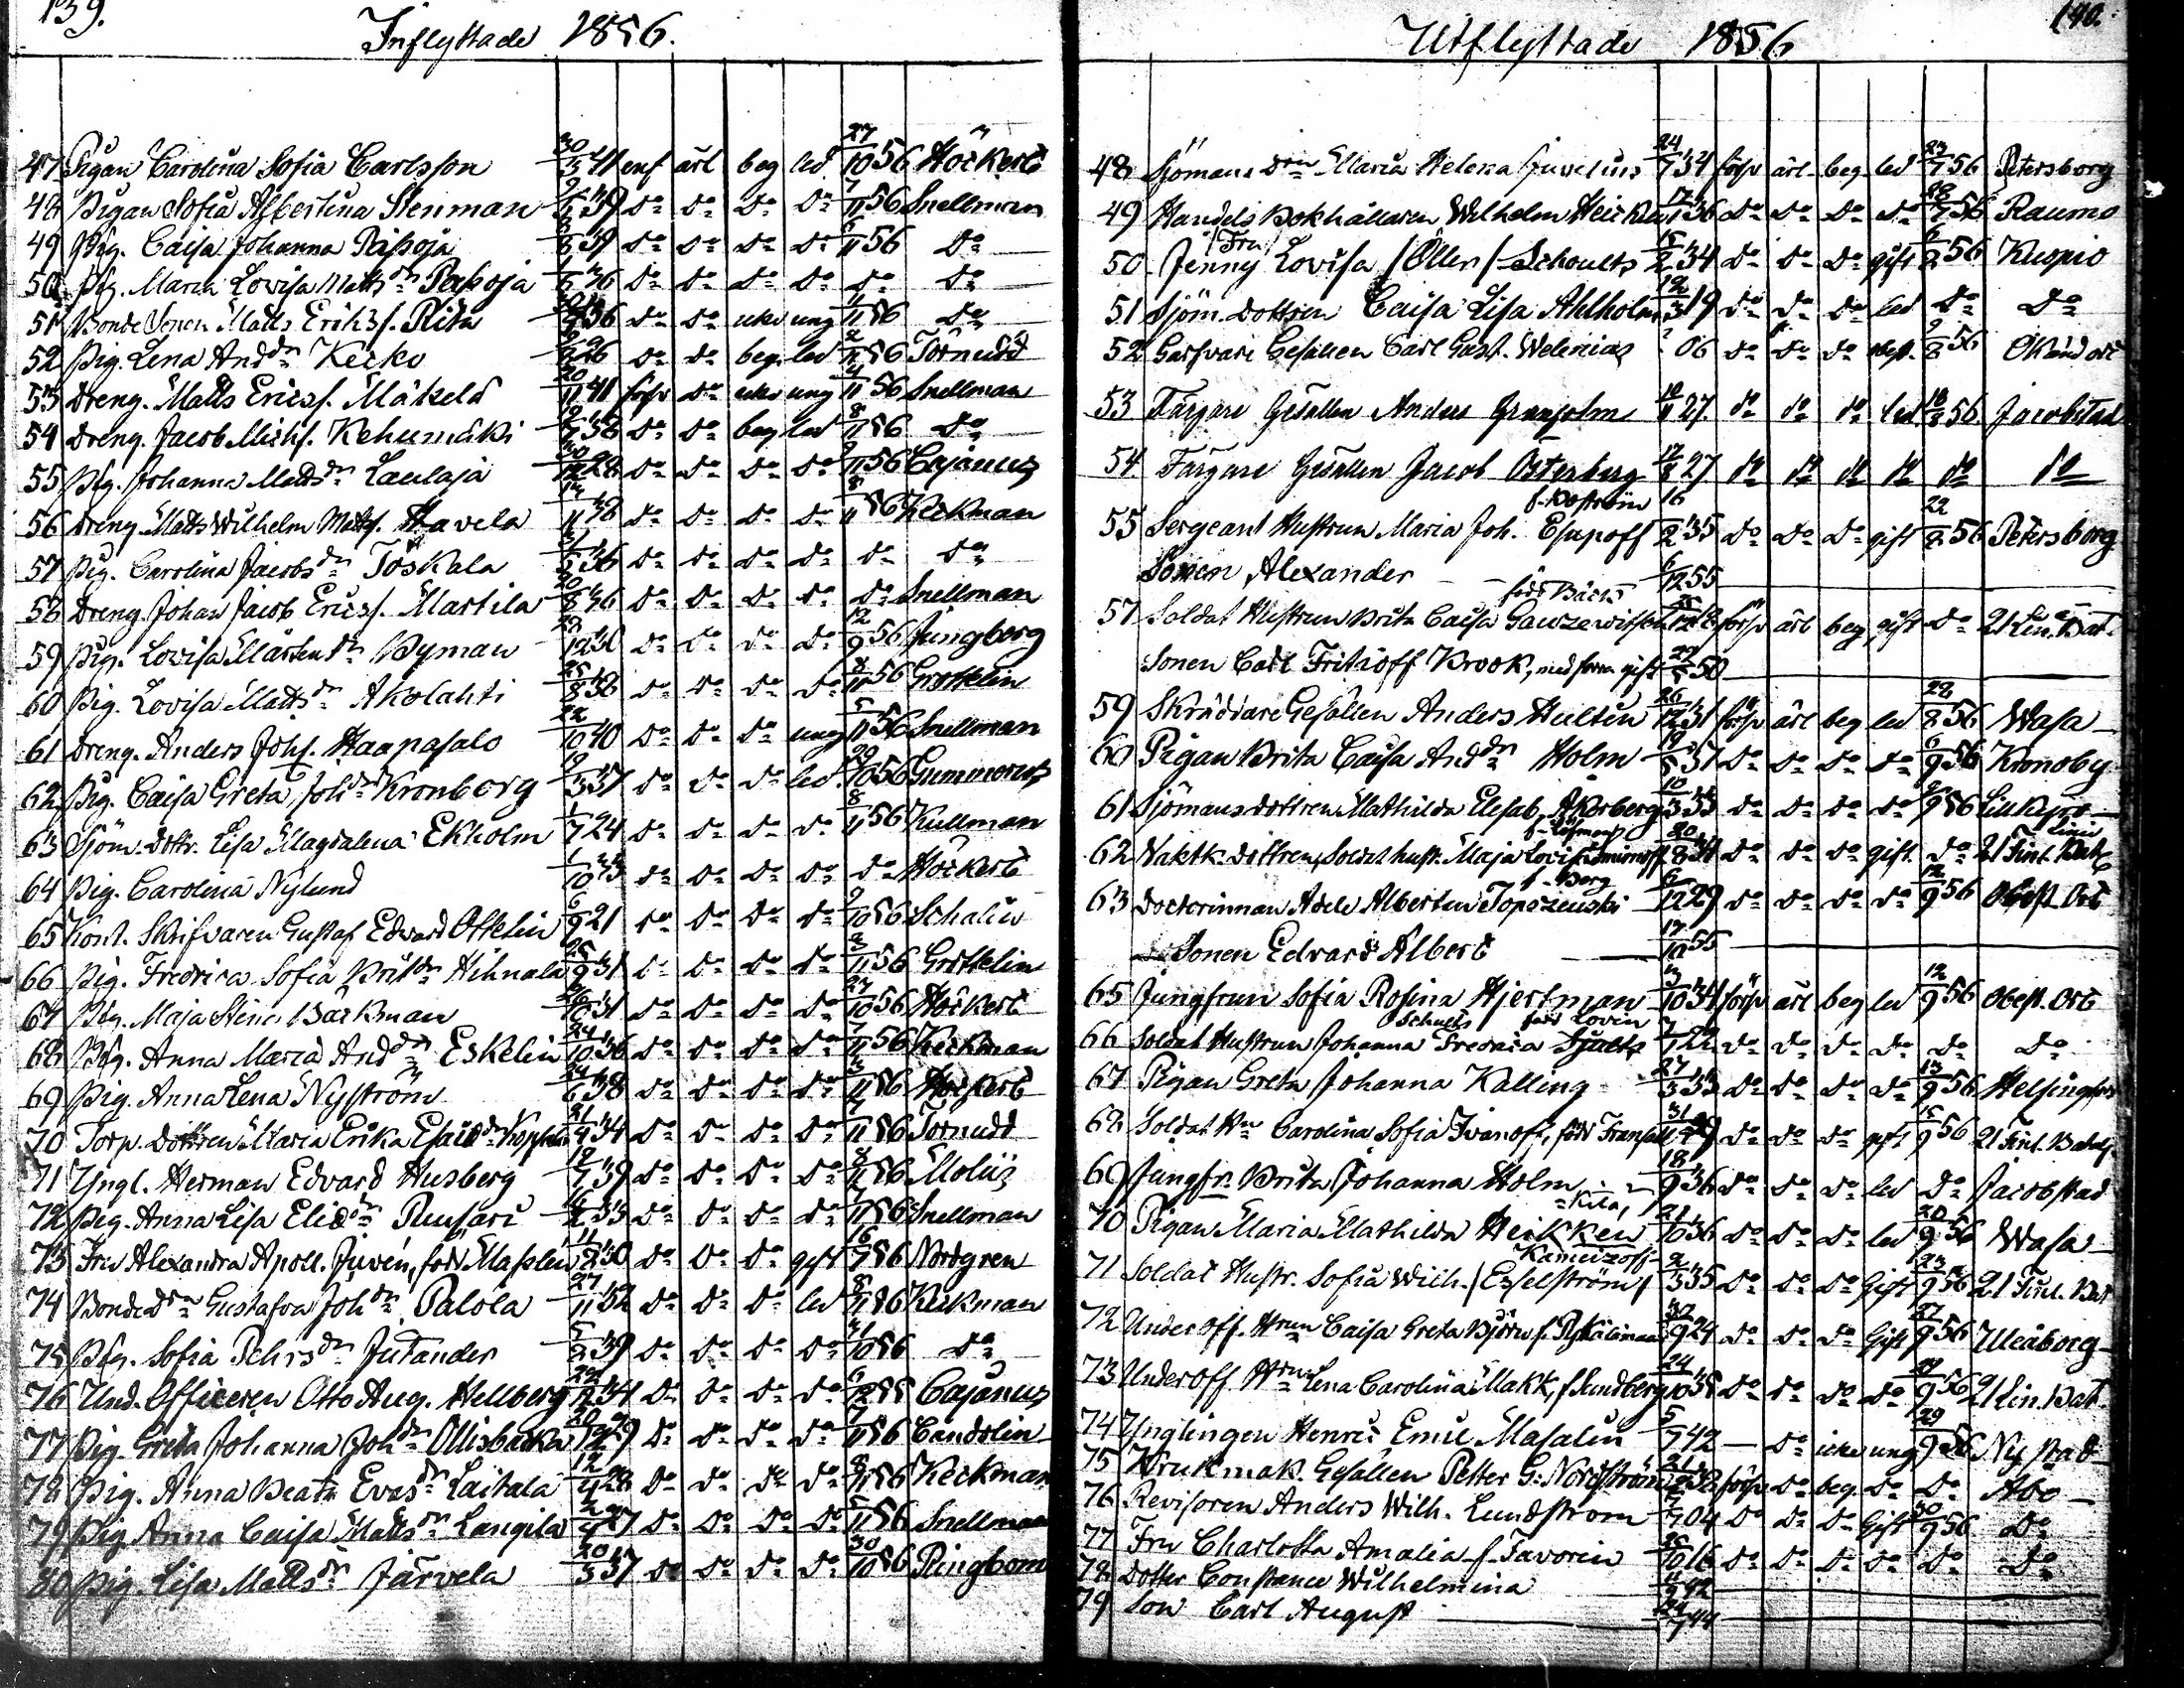 139.
Inflyttade 1856.
47 Pigan Carolina Sofia Carlsson 30/3 41 enf ärl beg led 27/10 56 Höckert
48 Pigan Sofia Albertina Stenman 39 Do Do Do Do 7/11 56 Snellman
49 Pig. Caisa Johanna Do Do Do Do 6/11 56 Do
50 Pig. Maria Lovisa Matts dr 36 Do Do Do Do Do Do
51 Bonde Sonen Matts Erikss. 36 Do Do icke ung 11/11 56 Do
52 Pig. Lena And dr Kecko 26 Do Do beg. led 2/11 56 Törnudd
53 Dreng. Matts Ericss. Mäkelä 20/11 41 förhr Do icke ung 4/11 56 Snellman
54 Dreng. Jacob Michs. Kehumäki 38 Do Do beg led 8/11 56 Do
55 Pig. Johanna Matts dr Laulaja 30/12 28 Do Do Do Do 9/11 56 Cajanus
56 Dreng Matts Wilhelm Matts. Havela 38 Do Do Do Do 8/11 56 Keckman
57 Pig. Carolina Jacobs dr Töskala 36 Do Do Do Do Do Do
58 Dreng. Johan Jacob Ericss. Martila 20/8 36 Do Do Do Do Do Snellman
59 Pig. Lovisa Mårtens dr Nyman Do Do Do Do 12/9 56 Jungberg
60 Pig. Lovisa Matts dr Akolahti 25/8 38 Do Do Do Do 56 Grottelin
61 Dreng. Anders Johs. Haapasalo 22/10 40 Do Do Do ung 5/11 56 Snellman
62 Pig. Caisa Greta Joh dr Kronborg 19/3 37 Do Do Do led. 29/10 56 Gummerus
63 Sjöm. Dottr. Lisa Magdalena Ekholm 1/7 24 Do Do Do Do 8/11 56 Kullman
64 Pig. Carolina Nylund 1/10 Do Do Do Do Do Höckert
65 Kont. Skrifvaren Gustaf Edvard Ottelin 6/9 21 Do Do Do Do 9/10 56 Schalin
66 Pig. Fredrica Sofia Hihnala 25/9 31 Do Do Do Do 3/11 56 Grottelin
67 Pig. Maja Stina Bäckman 26/10 31 Do Do Do Do 27/10 56 Höckert
68 Pig. Anna Maria And dr Eskelin 24/10 36 Do Do Do Do 7/11 56 Keckman
69 Pig. Anna Lena Nyström 24/6 38 Do Do Do Do 3/11 56 Höckert
70 Torp. Dottren Maria Erika Esaie dr 34 Do Do Do Do 7/11 56 Törnudd
71 Yngl. Herman Edvard Husberg 12/7 39 Do Do Do Do 8/11 56 Moliis
72 Pig. Anna Lisa Elie dr Ruusari 16/2 33 Do Do Do Do 7/11 56 Snellman
73 Fru Alexandra Apoll. Juvén, född Masalin 11/2 30 Do Do Do gift 16/7 56 Nordgren
74 Bonde Gustafva Joh dr Palola 27/11 32 Do Do Do led 8/11 56 Keckman
75 Pig. Sofia Pehrs dr Jutander 5/2 39 Do Do Do Do 31/10 56 Do
76 Und. Officeren Otto Aug. Hellberg 22/12 34 Do Do Do Do 6/12 55 Cajanus
77 Pig. Greta Johanna Joh dr Ollisbacka 20/12 29 Do Do Do Do 7/11 56 Candelin
78 Pig. Anna Beata Evas dr Laitala 12/4 28 Do Do Do Do 8/11 56 Keckman
79 Pig Anna Caisa Matts dr Langila 27 Do Do Do Do 5/11 56 Snellman
80 Pig. Lisa Matts dr Järvela 20/3 37 Do Do Do Do 30/10 56 Ringbom
140.
Utflyttade 1856
48 Sjömans Drn Maria Helena Juvelius 24/7 34 förhr ärl beg led 23/7 56 Petersborg
49 Handels Bokhållaren Wilhelm Heickell 17/1 36 Do Do Do Do 28/7 56 Raumo
50 /Fru/ Jenny Lovisa /Öller/ Schoults 15/2 34 Do Do Do gift 6/8 56 Kuopio
51 Sjöm. Dottren Caisa Lisa Ahlholm 12/3 19 Do Do Do led Do Do
52 Garfvare Gesällen Carl Gust. Welenius ? 06 Do Do Do 9/8 56 Okänd ort
53 Färgare Gesällen Anders Granholm 27 do do do led 18/8 56. Jacobstad
54. Färgare Gesällen Jacob Österberg 27 do do do do do do
55 Sergeant Hustrun Maria Joh. Esupoff f. Boström 16/2 35 Do Do Do gift 22/8 56 Petersborg
Sonen Alexander 6/12 55
57 Soldat Hustrun Brita Caisa född Bäck förhr ärl beg gift Do 21 Lin. Bat.
Sonen Carl Frithioff Brook, 50
59 Skräddare Gesällen Anders Hultin 26/12 31 förhr ärl beg led 28/8 56 Wasa
60 Pigan Brita Caisa And dr Holm 37 Do Do Do Do 6/9 56 Kronoby
61 Sjömansdottren Mathilda Elisab. Åkerberg 10/3 33 Do Do Do Do 56 Lillkyro
62 Vaktk. dottren, Soldat hustr. Maja Lovisa Smirnoff f. Löfman 20/8 34 Do Do Do gift. Do 21 Finl. Linie Bat.
63 Doctorinnan Adele Albertina Topczewski f. Berg 6/12 29 Do Do Do Do 12/9 56 Obest. Ort
Sonen Edvard Albert 17/10 55
65 Jungfrun Sofia Rosina Hjertman 3/10 34 förhr ärl beg led 12/9 56 Obest. Ort
66 Soldat Hustrun Johanna Fredrica Schults född Lovin 22 Do Do Do Do Do Do
67 Pigan Greta Johanna Kalling 27/3 33 Do Do Do Do 13/9 56 Helsingfors
68 Soldat Hn Carolina Sofia Ivanoff, född 29 Do Do Do gift 15/9 56 21 Finl. Batalj.
69 Jungfr. Brita Johanna Holm 18/9 36 Do Do Do led Do Jacobstad
70 Pigan Maria Mathilda Heikken 21/10 36 Do Do Do led 20/9 56 Wasa
71 Soldat Hustr. Sofia Wilh. /Esselström/ 2/3 35 Do Do Do Gift 23/9 56 21 Finl. Bat
72 Under off. Hrun Caisa Greta Björn f. 9 24 Do Do Do Gift 27/9 56 Uleåborg
73 Underoff Hrun Lena Carolina Makk, f. Sundberg 24/10 35 Do Do Do Do 27/9 56 21 Lin. Bat.
74 Ynglingen Henric Emil Masalin 5/7 42 — Do icke ung 29/9 56 Nystad
75 Krukmak. Gesällen Petter G. Nordström 38 förhr Do beg. Do Do Åbo
76 Revisoren Anders Wilh. Lundström 7/7 04 Do Do Do Gift 30/9 56 Do
77 Fru Charlotta Amalia f. Favorin 26/10 16 Do Do Do Do Do Do
78 Dotter Constance Wilhelmina 42
79 Son Carl August 44